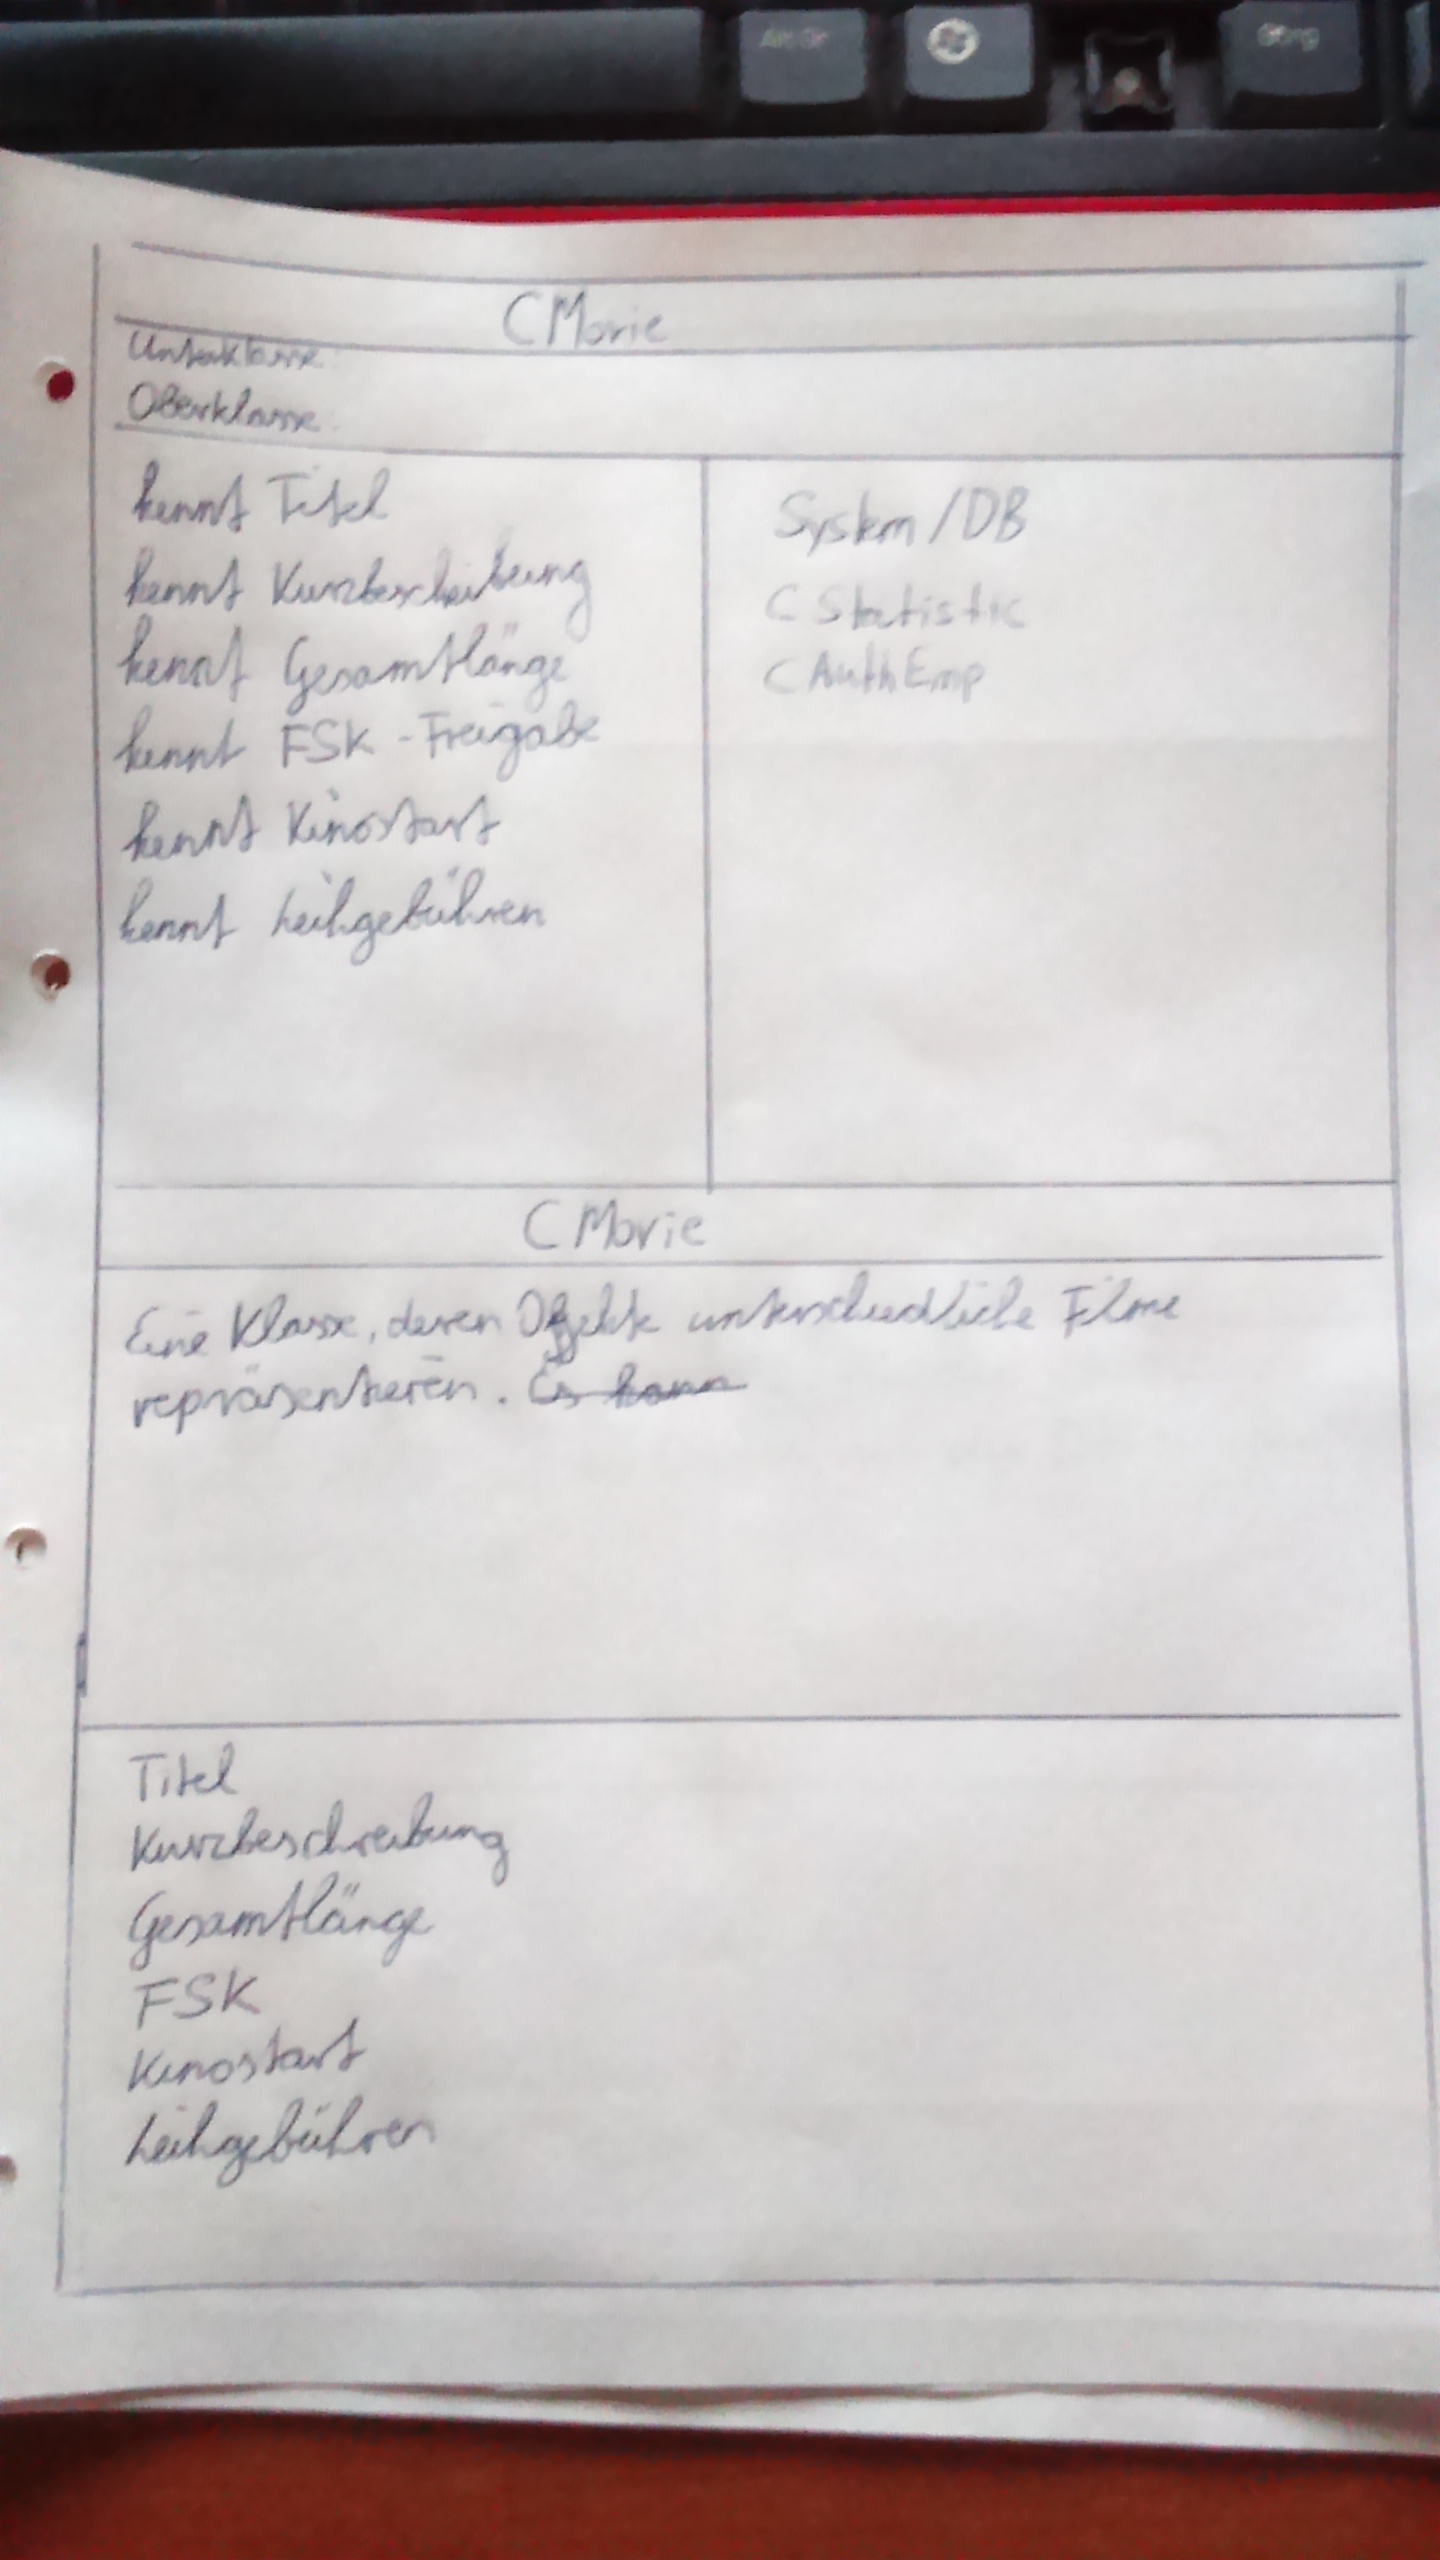 Alt Gr
Strg
CMovie
Unterklasse:
Oberklasse:
kennt Titel
kennt Kurzbeschreibung
kennt Gesamtlänge
kennt FSK-Freigabe
kennt Kinostart
kennt Leihgebühren
System/DB
CStatistic
CAuthEmp
CMovie
Eine Klasse, deren Objekte unterschiedliche Filme
repräsentieren. Es kann
Titel
Kurzbeschreibung
Gesamtlänge
FSK
Kinostart
Leihgebühren